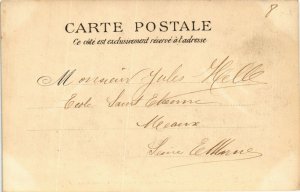 8
CARTE POSTALE
Ce côté est exclusivement réservé à l'adresse
Monsieur Jules Helle
Ecole Saint Etienne
Meaux
Seine Et Marne